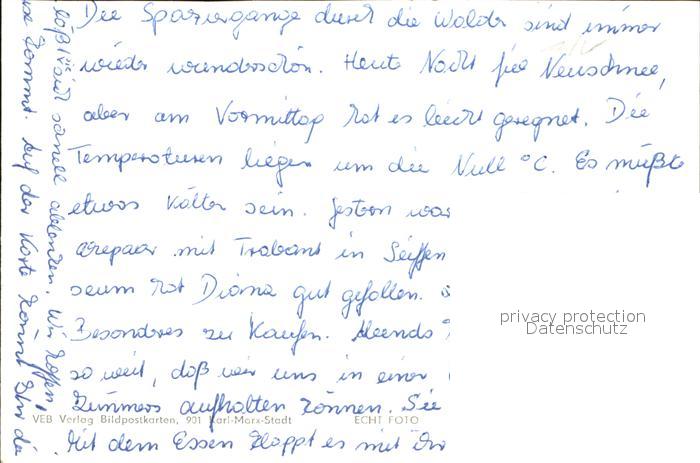 Die Spaziergänge durch die Wälder sind immer
wieder wunderschön. Heute Nacht fiel Neuschnee,
aber am Vormittag hat es leicht geregnet. Die
Temperaturen liegen um die Null °C. Es müßte
etwas kälter sein. Gestern war
mit Trabant in Seiffen
seum hat Diana gut gefallen.
Besonderes zu kaufen. Abends
so weit, daß wir uns in einer
Zimmers aufhalten können. Sie
Mit dem Essen klappt es mit
läßt sich schnell ablenken. Wir hoffen,
kommt. Auf der Karte könnt Ihr die
VEB Verlag Bildpostkarten, 901 Karl-Marx-Stadt ECHT FOTO
privacy protection
Datenschutz